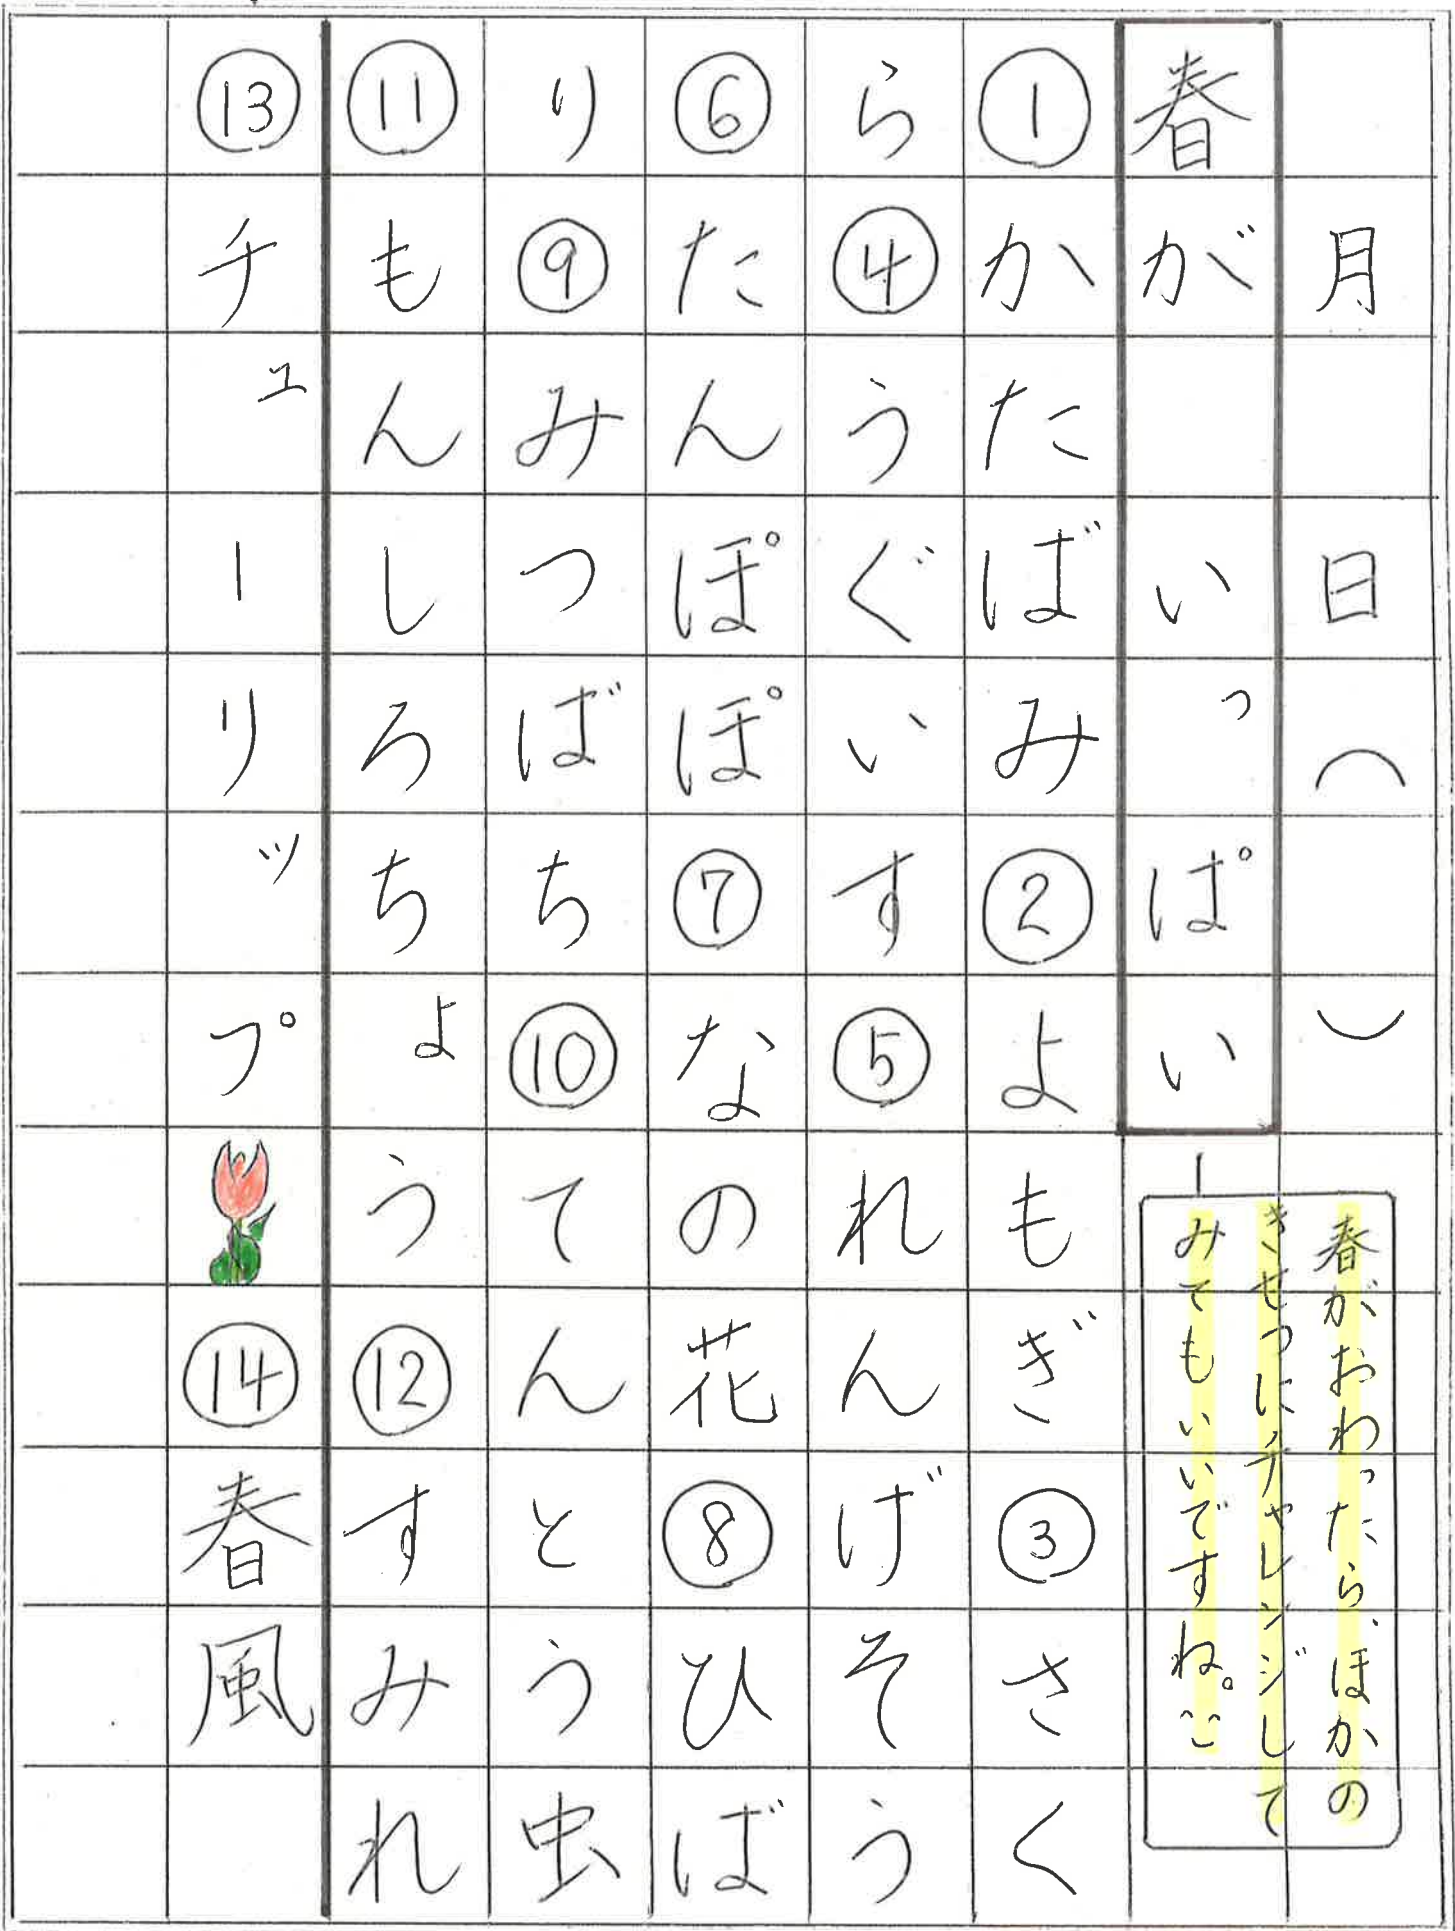 月 日（ ）
春が いっぱい
春がおわったら、ほかの
きせつにチャレンジして
みてもいいですね。
①かたばみ②よもぎ③さく
ら④うぐいす⑤れんげそう
⑥たんぽぽ⑦なの花⑧ひば
り⑨みつばち⑩てんとう虫
⑪もんしろちょう⑫すみれ
⑬チューリップ⑭春風